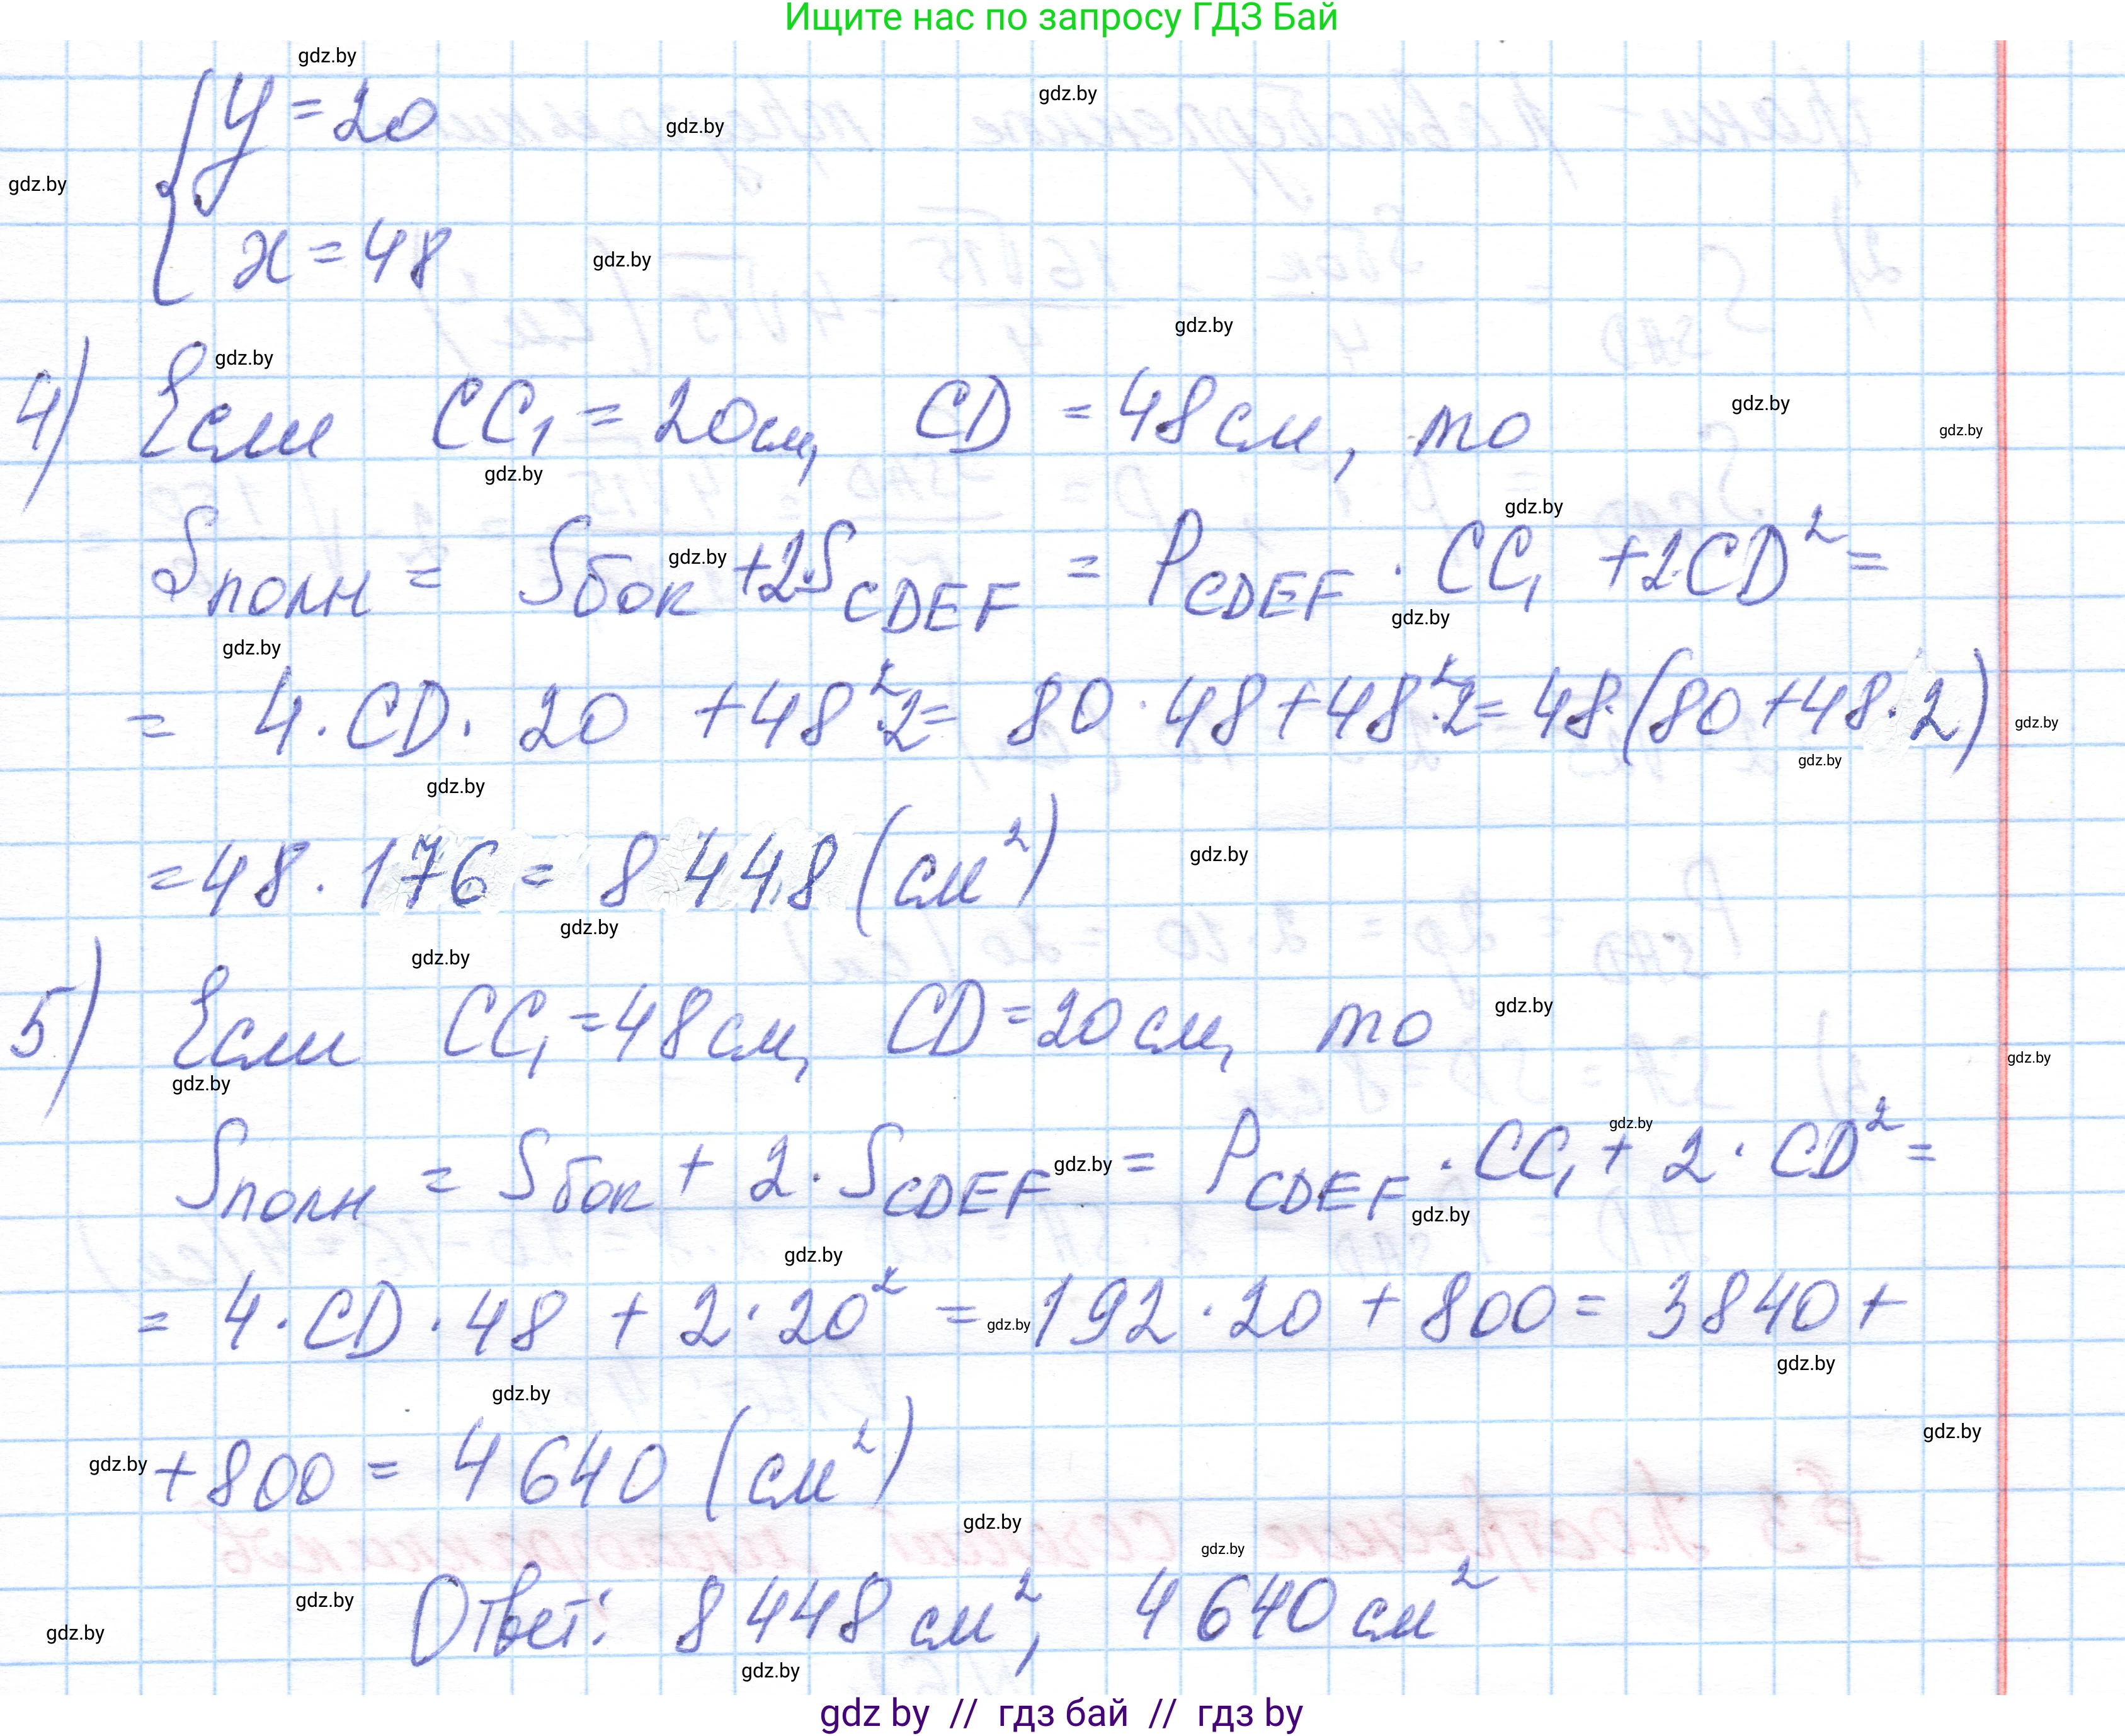 Ищите нас по запросу ГДЗ Бай
{ y = 20
x = 48
4) Если CC₁ = 20см, CD = 48 см, то
Sполн = Sбок + 2·S CDEF = P CDEF · CC₁ + 2·CD² =
= 4 · CD · 20 + 48²·2 = 80 · 48 + 48²·2 = 48·(80 + 48·2)
= 48 · 176 = 8 448 (см²)
5) Если CC₁ = 48 см, CD = 20 см, то
Sполн = Sбок + 2 · S CDEF = P CDEF · CC₁ + 2 · CD² =
= 4 · CD · 48 + 2 · 20² = 192 · 20 + 800 = 3840 +
+ 800 = 4 640 (см²)
Ответ: 8 448 см², 4 640 см²
gdz by // гдз бай // гдз by